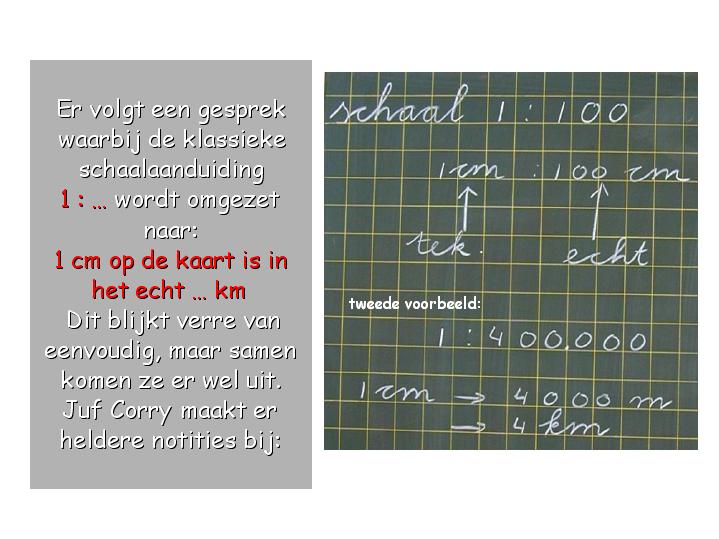 Er volgt een gesprek
waarbij de klassieke
schaalaanduiding
1 : … wordt omgezet
naar:
1 cm op de kaart is in
het echt … km
Dit blijkt verre van
eenvoudig, maar samen
komen ze er wel uit.
Juf Corry maakt er
heldere notities bij:
schaal 1 : 100
1cm : 100 cm
tek. echt
tweede voorbeeld:
1 : 400.000
1 cm → 4000 m
→ 4 km